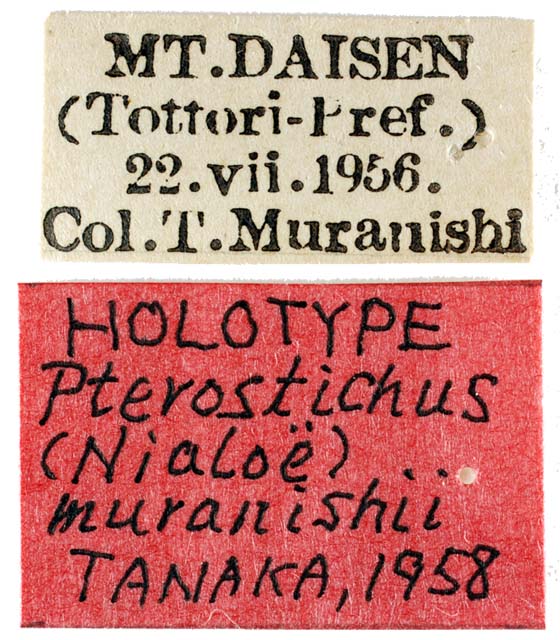 MT.DAISEN
(Tottori-Pref.)
22.vii.1956.
Col.T.Muranishi
HOLOTYPE
Pterostichus
(Nialoë)
muranishii
TANAKA, 1958